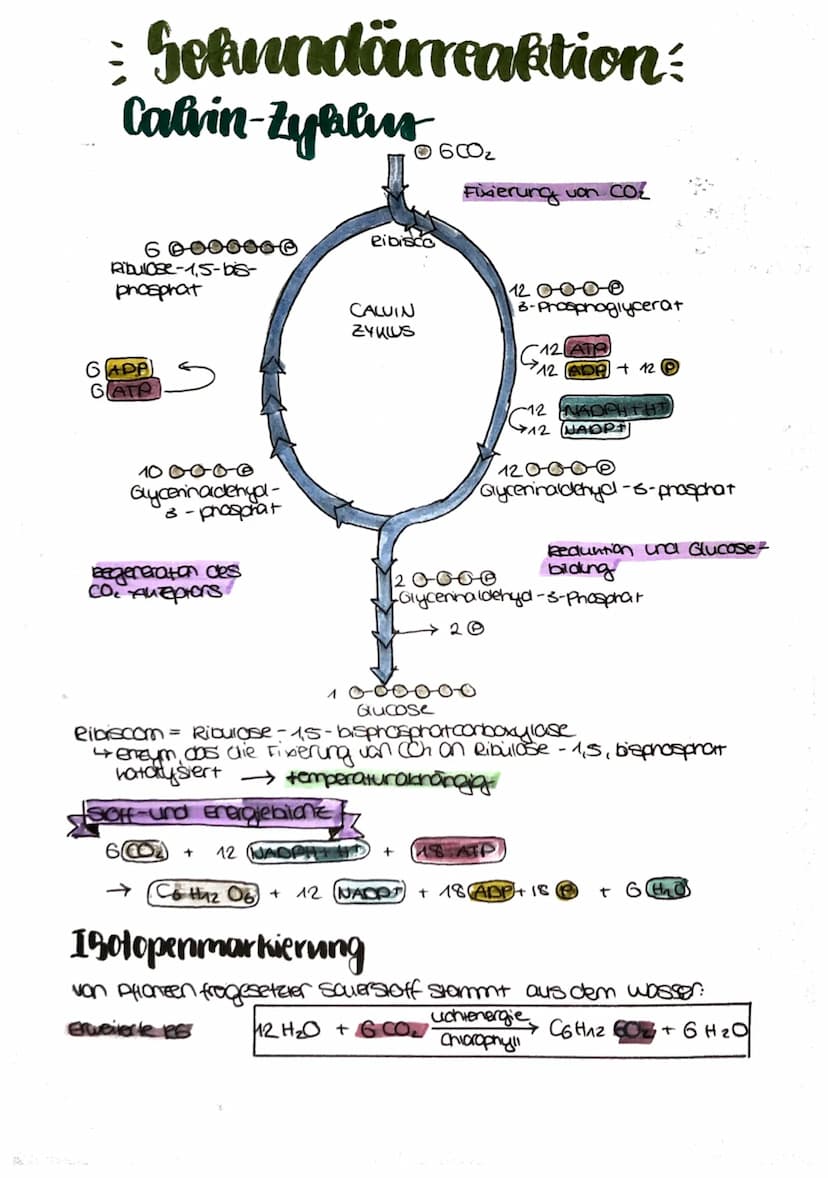 Sekundärreaktion
Calvin-Zyklus
6CO₂
Fixierung von CO₂
Ribisco
6 P P
Ribulose-1,5-bis-
phosphat
12 P
3-Phosphoglycerat
CALVIN
ZYKLUS
12 ATP
12 ADP + 12 P
6 ADP
6 ATP
12 NADPH+H⁺
12 NADP⁺
10 P
Glycerinaldehyd-
3-phosphat
12 P
Glycerinaldehyd-3-phosphat
Reduktion und Glucose-
bildung
Regeneration des
CO₂-Akzeptors
2 P
Glycerinaldehyd-3-Phosphat
→ 2 P
1
Glucose
Ribiscom = Ribulose-1,5-bisphosphatcarboxylase
↳ enzym, das die Fixierung von CO₂ an Ribulose-1,5, bisphosphat
katalysiert → temperaturabhängig
Stoff-und Energiebilanz
6 CO₂ + 12 NADPH+H⁺ + 18 ATP
→ C6 H12 O6 + 12 NADP⁺ + 18 ADP + 18 P + 6 H₂O
Isotopenmarkierung
von Pflanzen freigesetzter Sauerstoff stammt aus dem Wasser:
Erweiterte RG
12 H₂O + 6 CO₂ Lichtenergie → C6H12 6O₂ + 6 H₂O
Chlorophyll